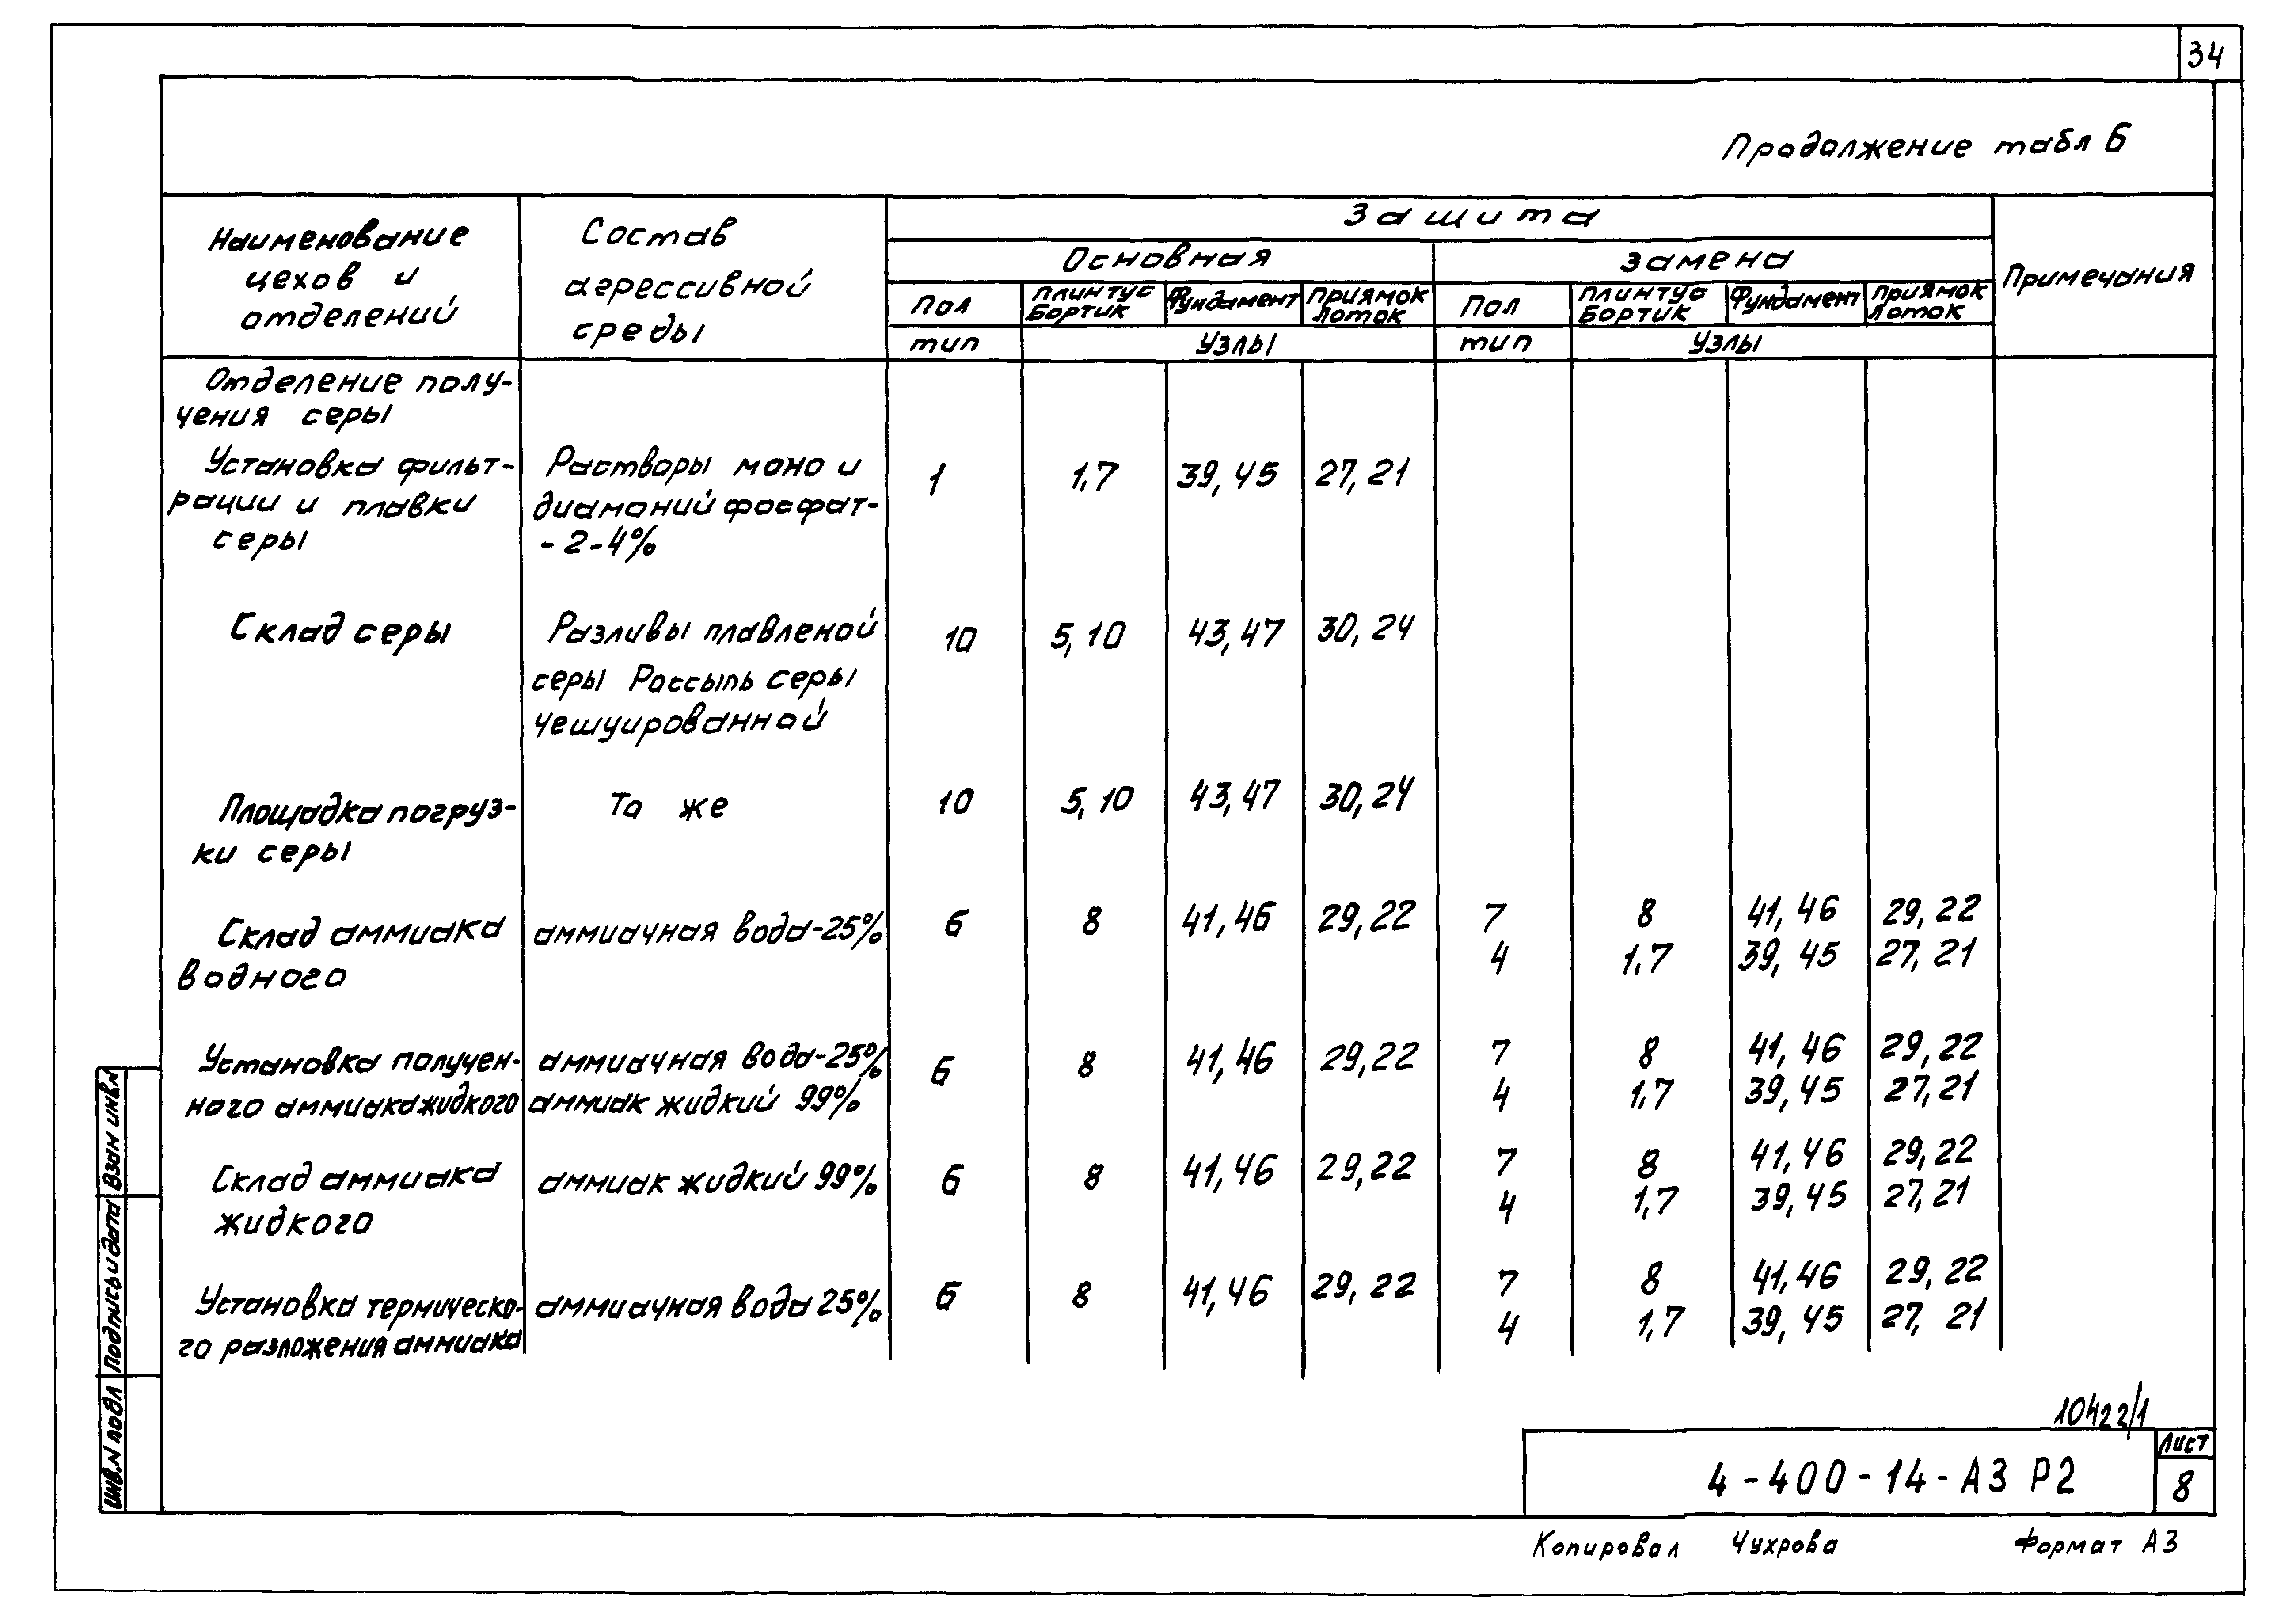 34
Продолжение табл 6
Наименование
цехов и
отделений
Состав
агрессивной
среды
Защита
Основная
замена
Примечания
Пол
плинтус
бортик
Фундамент
приямок
лоток
Пол
плинтус
бортик
Фундамент
приямок
лоток
тип
узлы
тип
узлы
Отделение полу-
чения серы
Установка фильт-
рации и плавки
серы
Растворы моно и
диамоний фосфат-
- 2-4%
1
1,7
39, 45
27, 21
Склад серы
Разливы плавленой
серы Рассыпь серы
чешуированной
10
5, 10
43, 47
30, 24
Площадка погруз-
ки серы
То же
10
5, 10
43, 47
30, 24
Склад аммиака
водного
аммиачная вода-25%
6
8
41, 46
29, 22
7
8
41, 46
29, 22
4
1.7
39, 45
27, 21
Установка получен-
ного аммиака жидкого
аммиачная вода-25%
аммиак жидкий 99%
6
8
41, 46
29, 22
7
8
41, 46
29, 22
4
1,7
39, 45
27, 21
Склад аммиака
жидкого
аммиак жидкий 99%
6
8
41, 46
29, 22
7
8
41, 46
29, 22
4
1,7
39, 45
27, 21
Установка термическо-
го разложения аммиака
аммиачная вода 25%
6
8
41, 46
29, 22
7
8
41, 46
29, 22
4
1,7
39, 45
27, 21
Взам инв.N
Подпись и дата
Инв.N подл
10422/1
4-400-14-А3 Р2
Лист
8
Копировал Чухрова Формат А3